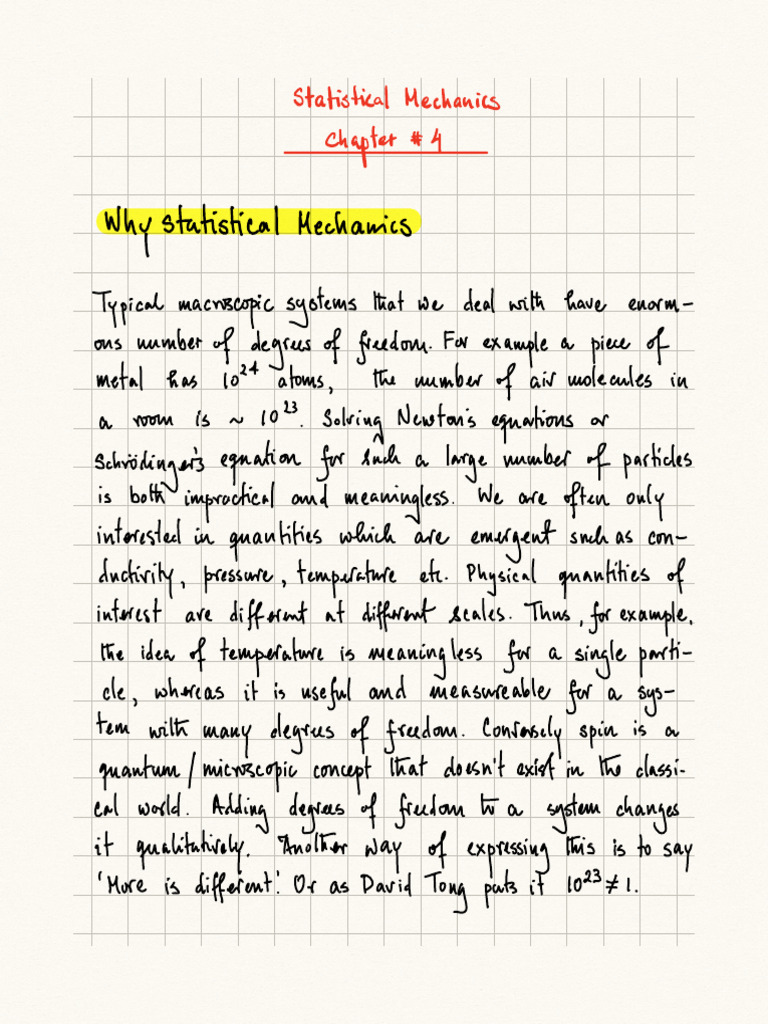 Statistical Mechanics
Chapter # 4
Why Statistical Mechanics
Typical macroscopic systems that we deal with have enorm-
ous number of degrees of freedom. For example a piece of
metal has 10²⁴ atoms, the number of air molecules in
a room is ~ 10²³. Solving Newton's equations or
Schrödinger's equation for such a large number of particles
is both impractical and meaningless. We are often only
interested in quantities which are emergent such as con-
ductivity, pressure, temperature etc. Physical quantities of
interest are different at different scales. Thus, for example,
the idea of temperature is meaningless for a single parti-
cle, whereas it is useful and measureable for a sys-
tem with many degrees of freedom. Conversely spin is a
quantum/microscopic concept that doesn't exist in the classi-
cal world. Adding degrees of freedom to a system changes
it qualitatively. Another way of expressing this is to say
'More is different'. Or as David Tong puts it 10²³ ≠ 1.